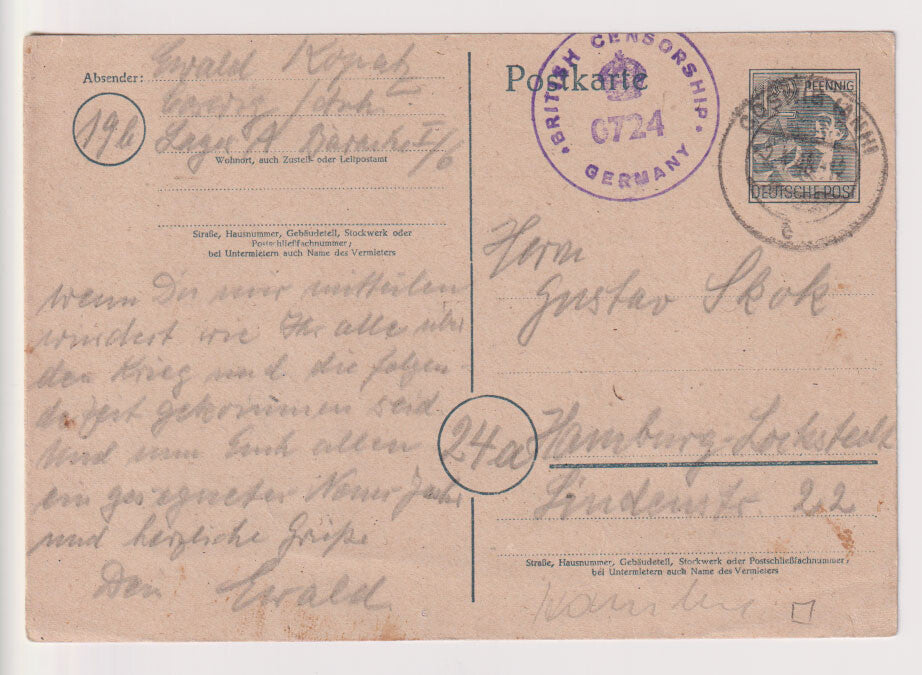 Absender: Ewald
Coswig /Anh.
19b
Lager A Baracke I/6
Wohnort, auch Zustell- oder Leitpostamt
Straße, Hausnummer, Gebäudeteil, Stockwerk oder
Postschließfachnummer;
bei Untermietern auch Name des Vermieters
wenn Du mir mitteilen
würdest wie Ihr alle über
den Krieg und die folgen-
de Zeit gekommen seid
Und nun Euch allen
ein gesegnetes Neues Jahr
und herzliche Grüße
Dein Ewald
Postkarte
BRITISH CENSORSHIP
0724
GERMANY
PFENNIG
DEUTSCHE POST
COSWIG (ANH)
c
Herrn
Gustav Skok
24a
Hamburg-Lockstedt
Lindenstr. 22
Straße, Hausnummer, Gebäudeteil, Stockwerk oder Postschließfachnummer;
bei Untermietern auch Name des Vermieters